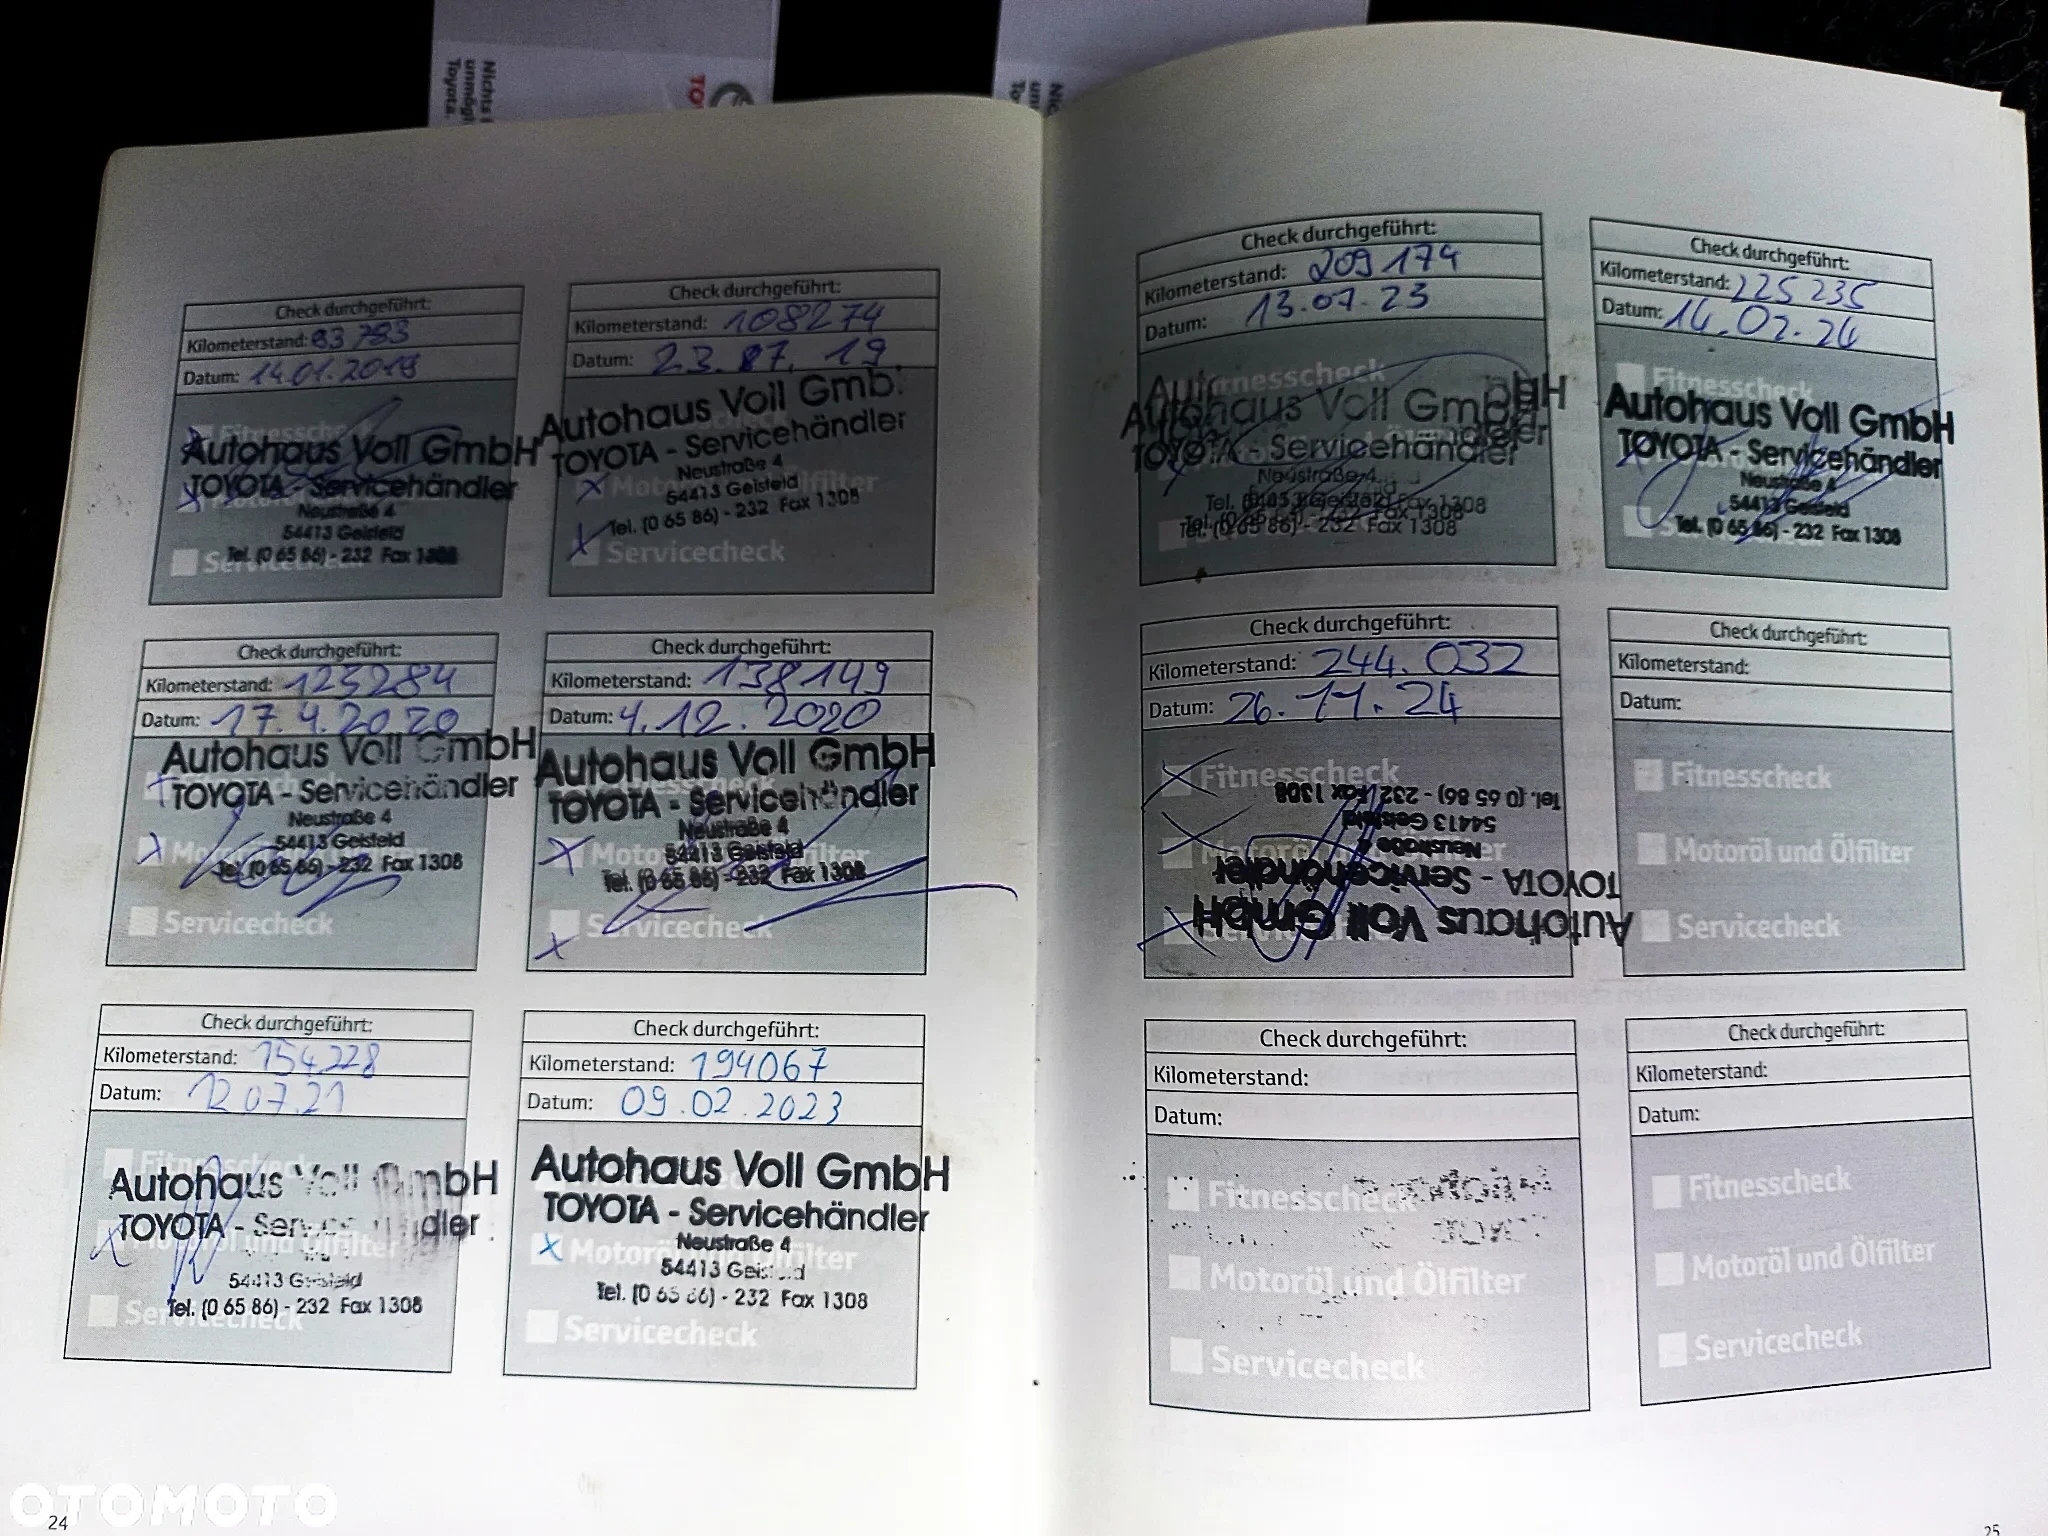 Nichts
unmögli
Toyota.
Check durchgeführt:
Kilometerstand: 83 783
Datum: 14.01.2019
Autohaus Voll GmbH
TOYOTA - Servicehändler
Neustraße 4
54413 Geisfeld
Tel. (0 65 86) - 232 Fax 1308
Servicecheck
Check durchgeführt:
Kilometerstand: 108274
Datum: 23.07.19
Autohaus Voll Gmb
TOYOTA - Servicehändler
Neustraße 4
54413 Geisfeld
Tel. (0 65 86) - 232 Fax 1308
Servicecheck
Check durchgeführt:
Kilometerstand: 123284
Datum: 17.4.2020
Autohaus Voll GmbH
TOYOTA - Servicehändler
Neustraße 4
54413 Geisfeld
Tel. (0 65 86) - 232 Fax 1308
Servicecheck
Check durchgeführt:
Kilometerstand: 138149
Datum: 4.12.2020
Autohaus Voll GmbH
TOYOTA - Servicehändler
Neustraße 4
54413 Geisfeld
Tel. (0 65 86) - 232 Fax 1308
Servicecheck
Check durchgeführt:
Kilometerstand: 154228
Datum: 12.07.21
Autohaus Voll GmbH
TOYOTA - Servicehändler
54413 Geisfeld
Tel. (0 65 86) - 232 Fax 1308
Servicecheck
Check durchgeführt:
Kilometerstand: 194067
Datum: 09.02.2023
Autohaus Voll GmbH
TOYOTA - Servicehändler
Neustraße 4
Motoröl und Ölfilter
54413 Geisfeld
Tel. (0 65 86) - 232 Fax 1308
Servicecheck
24
Check durchgeführt:
Kilometerstand: 209 174
Datum: 13.07.23
Fitnesscheck
Autohaus Voll GmbH
TOYOTA - Servicehändler
Neustraße 4
54413 Geisfeld
Tel. (0 65 86) - 232 Fax 1308
Check durchgeführt:
Kilometerstand: 225 235
Datum: 14.02.24
Fitnesscheck
Autohaus Voll GmbH
TOYOTA - Servicehändler
Neustraße 4
54413 Geisfeld
Tel. (0 65 86) - 232 Fax 1308
Check durchgeführt:
Kilometerstand: 244.032
Datum: 26.11.24
Fitnesscheck
Tel. (0 65 86) - 232 Fax 1308
54413 Geisfeld
Neustraße 4
TOYOTA - Servicehändler
Autohaus Voll GmbH
Check durchgeführt:
Kilometerstand:
Datum:
Fitnesscheck
Motoröl und Ölfilter
Servicecheck
Check durchgeführt:
Kilometerstand:
Datum:
Fitnesscheck
Motoröl und Ölfilter
Servicecheck
Check durchgeführt:
Kilometerstand:
Datum:
Fitnesscheck
Motoröl und Ölfilter
Servicecheck
25
OTOMOTO